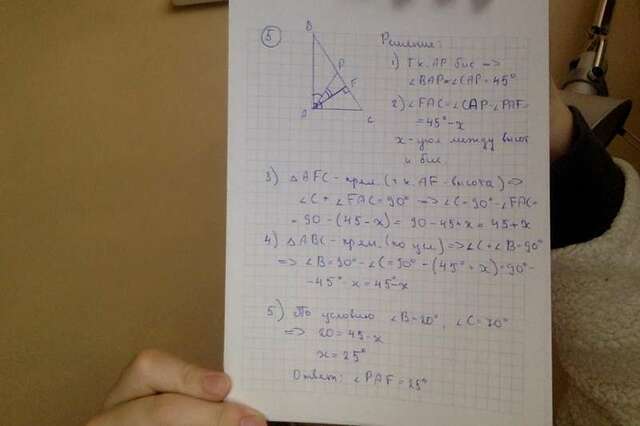 5
B
P
F
A
C
Решение:
1) Т.к. AP бис =>
∠BAP=∠CAP=45°
2) ∠FAC=∠CAP-∠PAF=
=45°-x
x - угол между высот
и бис.
3) △AFC - прям. (т.к. AF - высота) =>
∠C+∠FAC=90° => ∠C=90°-∠FAC=
=90-(45-x)=90-45+x=45+x
4) △ABC - прям. (по усл) => ∠C+∠B=90°
=> ∠B=90°-∠C=90°-(45°+x)=90°-
-45°-x=45°-x
5) По условию ∠B=20°, ∠C=70°
=> 20=45-x
x=25°
Ответ: ∠PAF=25°